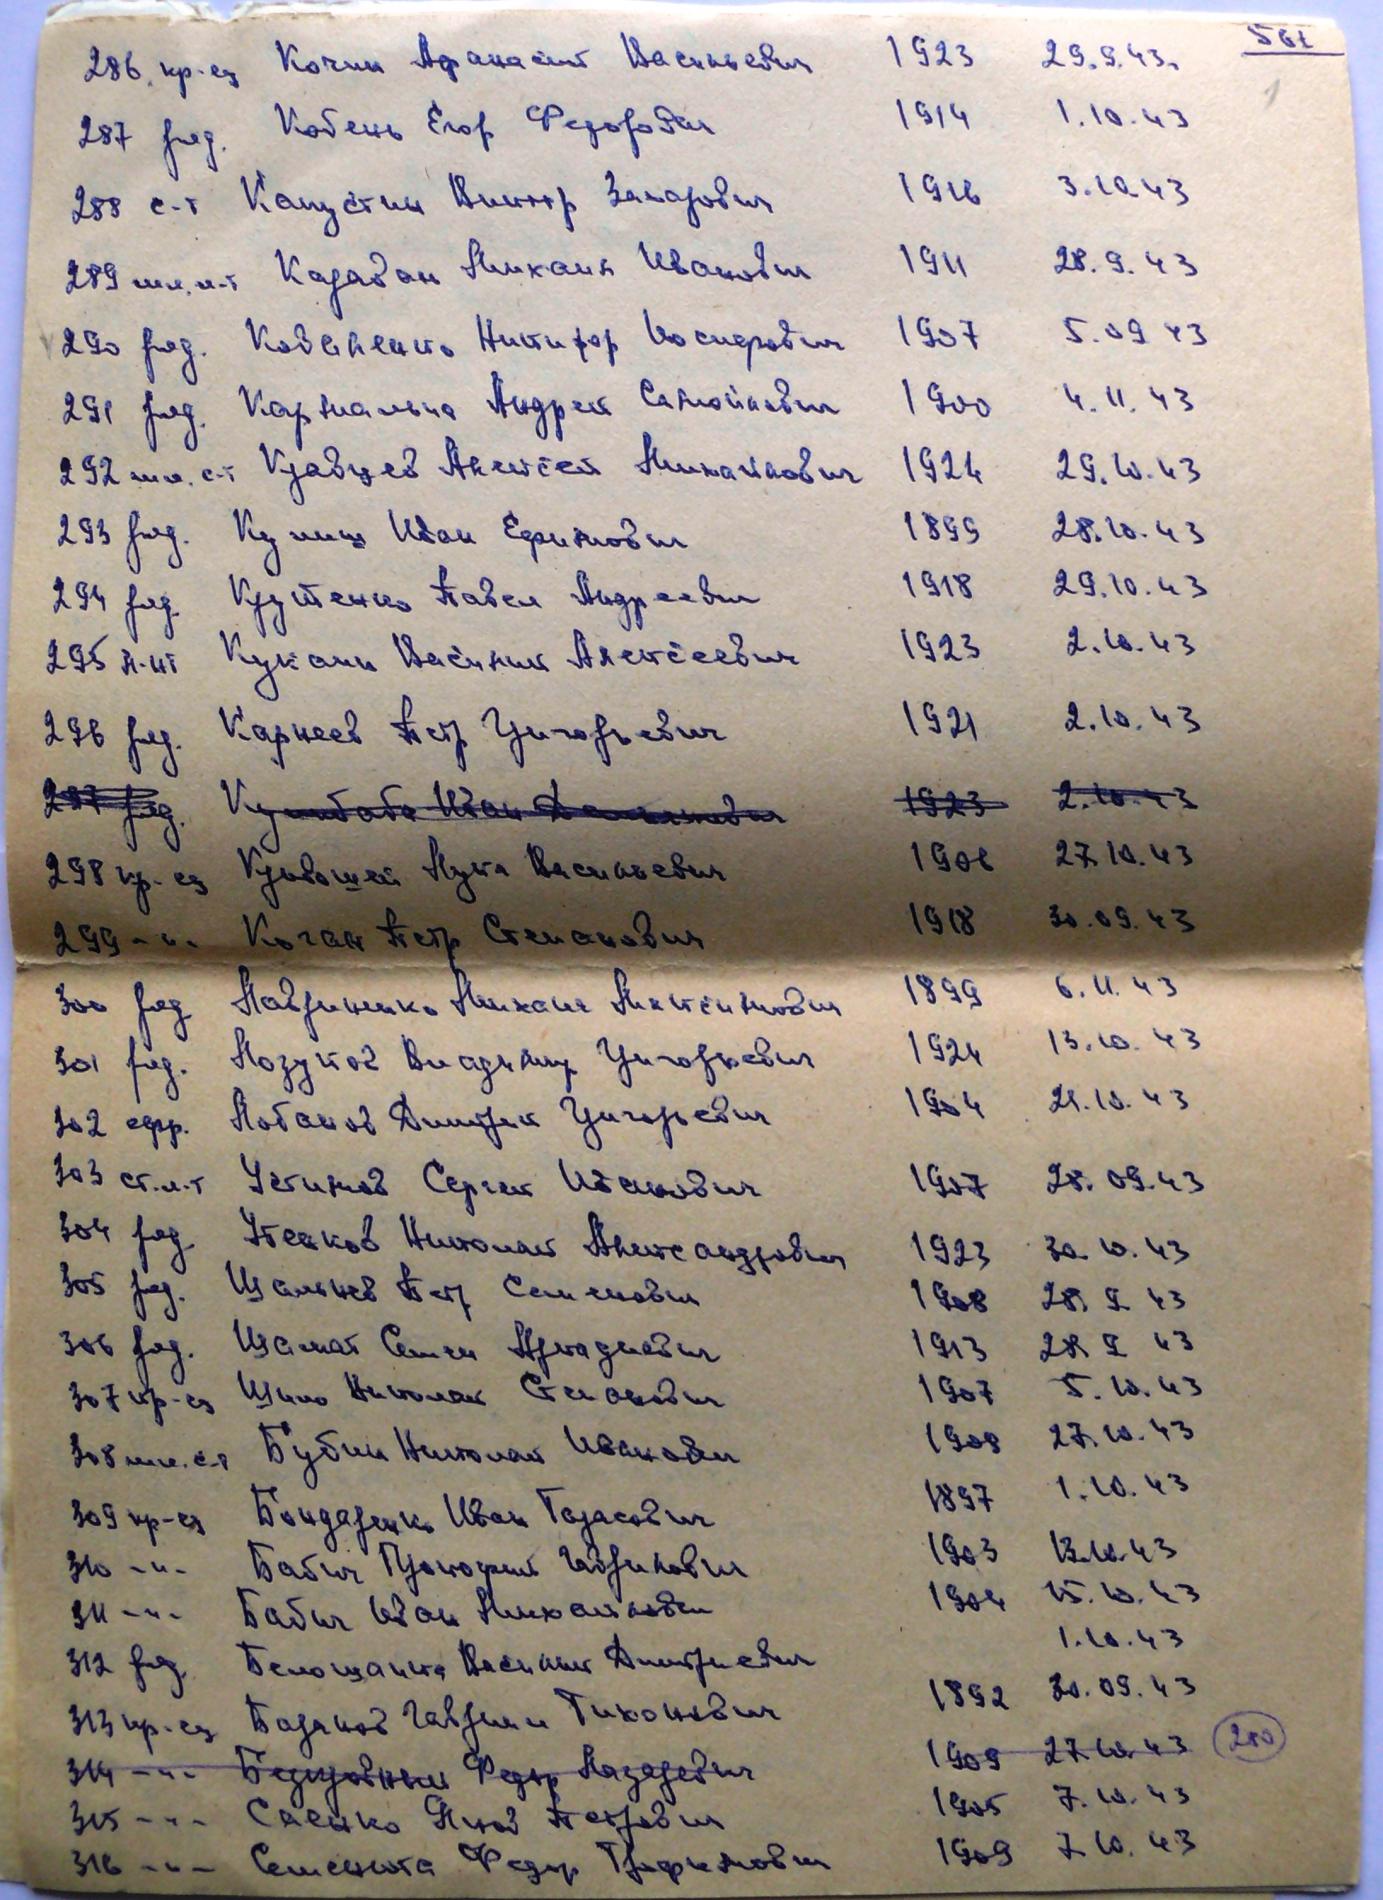 286. кр-ец Кочин Афанасий Васильевич 1923 29.9.43.
287 ряд. Кобень Егор Федорович 1914 1.10.43
288 с-т Капустин Виктор Захарович 1916 3.10.43
289 мл. л-т Карабан Михаил Иванович 1911 28.9.43
290 ряд. Коваленко Никифор Иосифович 1907 5.09 43
291 ряд. Андрей Самойлович 1900 4.11.43
292 мл. с-т Кравцев Алексей Михайлович 1924 29.10.43
293 ряд. Кулиш Иван Ефимович 1899 28.10.43
294 ряд. Павел Андреевич 1918 29.10.43
295 Василий Алексеевич 1923 2.10.43
296 ряд. Карнеев Петр Григорьевич 1921 2.10.43
297 ряд. Иван 1923 2.10.43
298 кр-ец Кривошей Лука Васильевич 1906 27.10.43
299 -"- Коган Петр Степанович 1918 30.09.43
300 ряд Лавриненко Михаил Максимович 1899 6.11.43
301 ряд. Владимир Григорьевич 1924 13.10.43
302 ефр. Лобанов Дмитрий Григорьевич 1904 21.10.43
303 ст.л-т Устинов Сергей Иванович 1907 28.09.43
304 ряд Николай Александрович 1923 30.10.43
305 ряд. Петр Семенович 1908 28.9 43
306 ряд. Семен Аркадиевич 1913 28.9 43
307 кр-ец Николай Степанович 1907 5.10.43
308 мл. с-т Бубин Николай Иванович 1908 27.10.43
309 кр-ец Бондаренко Иван Тарасович 1897 1.10.43
310 -"- Бабич Прокофий Гаврилович 1903 13.10.43
311 -"- Бабич Иван Михайлович 1904 15.10.43
312 ряд Василий Дмитриевич 1.10.43
313 кр-ец Баранов Гаврил Тихонович 1892 30.09.43
314 -"- Федор Назаревич 1909 27.10.43 280
315 -"- Саенко Яков Петрович 1905 7.10.43
316 -"- Семенюта Федор Трофимович 1909 7.10.43